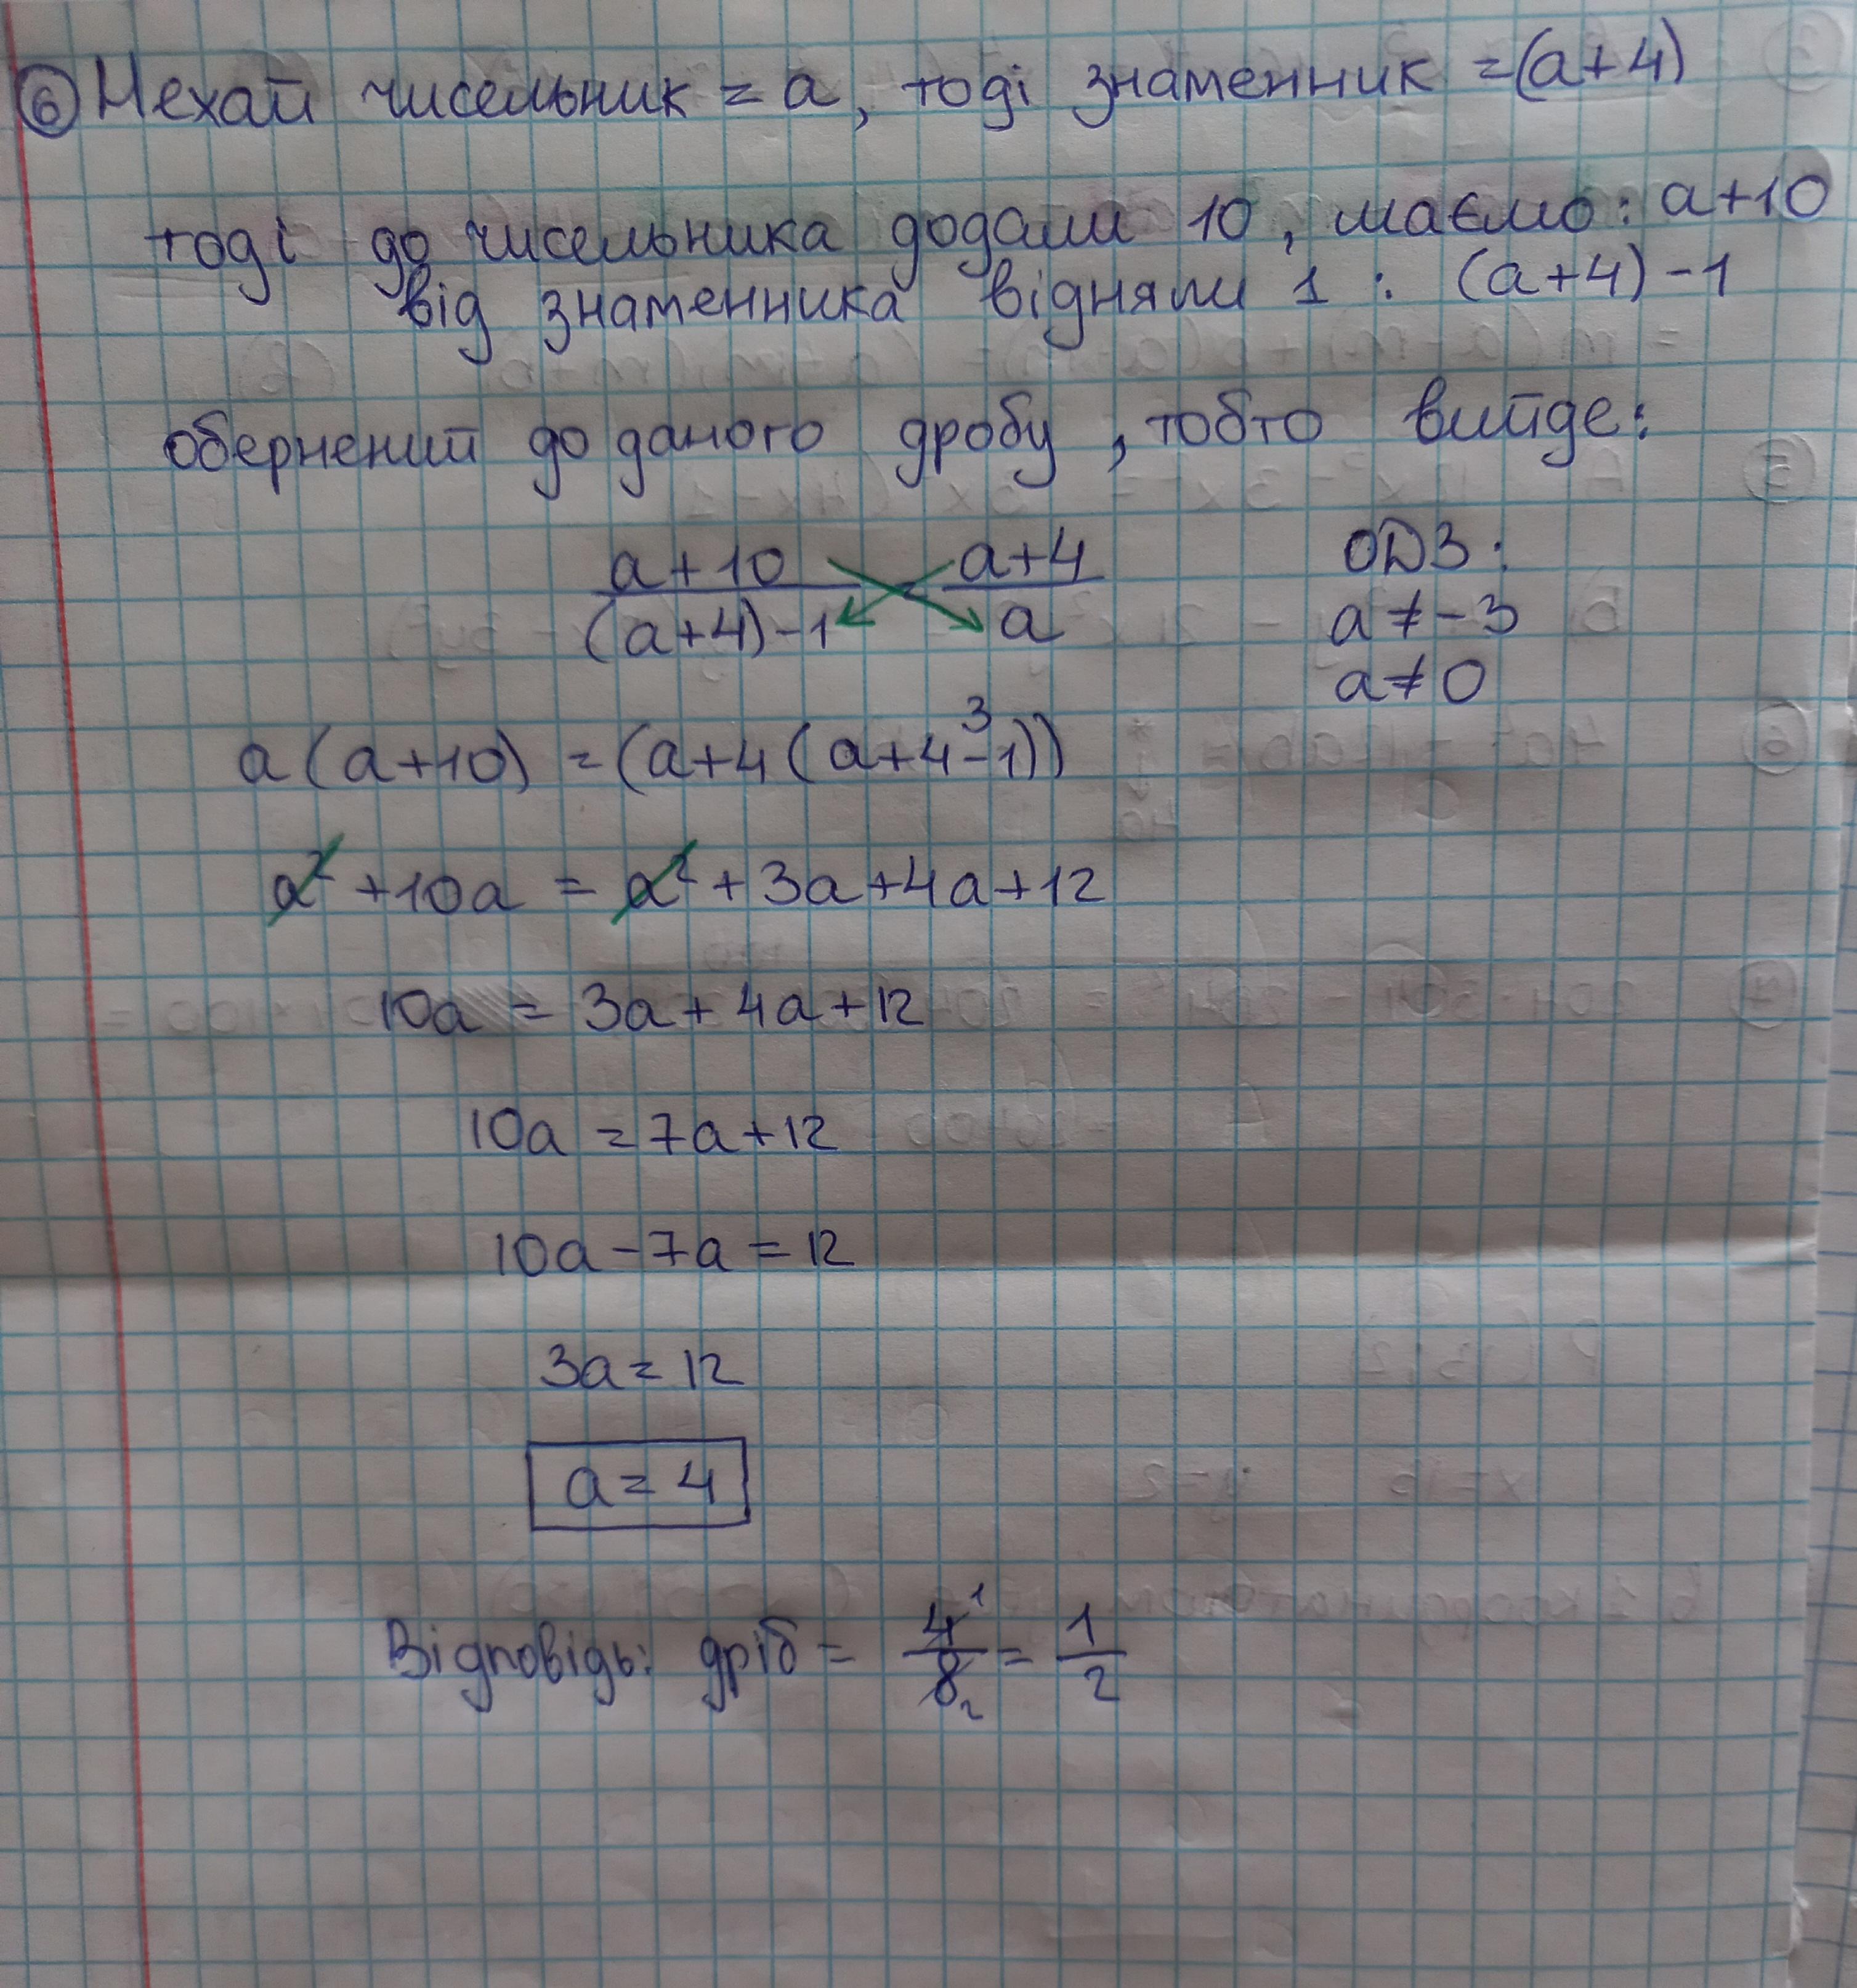 ⑥ Нехай чисельник = a, тоді знаменник = (a+4)
тоді до чисельника додали 10, маємо: a+10
від знаменника відняли 1 : (a+4)-1
обернений до даного дробу, тобто вийде:
a+10 / (a+4)-1 = a+4 / a
ОДЗ:
a ≠ -3
a ≠ 0
a(a+10) = (a+4(a+4-1)) 3
a² + 10a = a² + 3a + 4a + 12
10a = 3a + 4a + 12
10a = 7a + 12
10a - 7a = 12
3a = 12
a = 4
Відповідь: дріб = 4 1 / 8 2 = 1 / 2